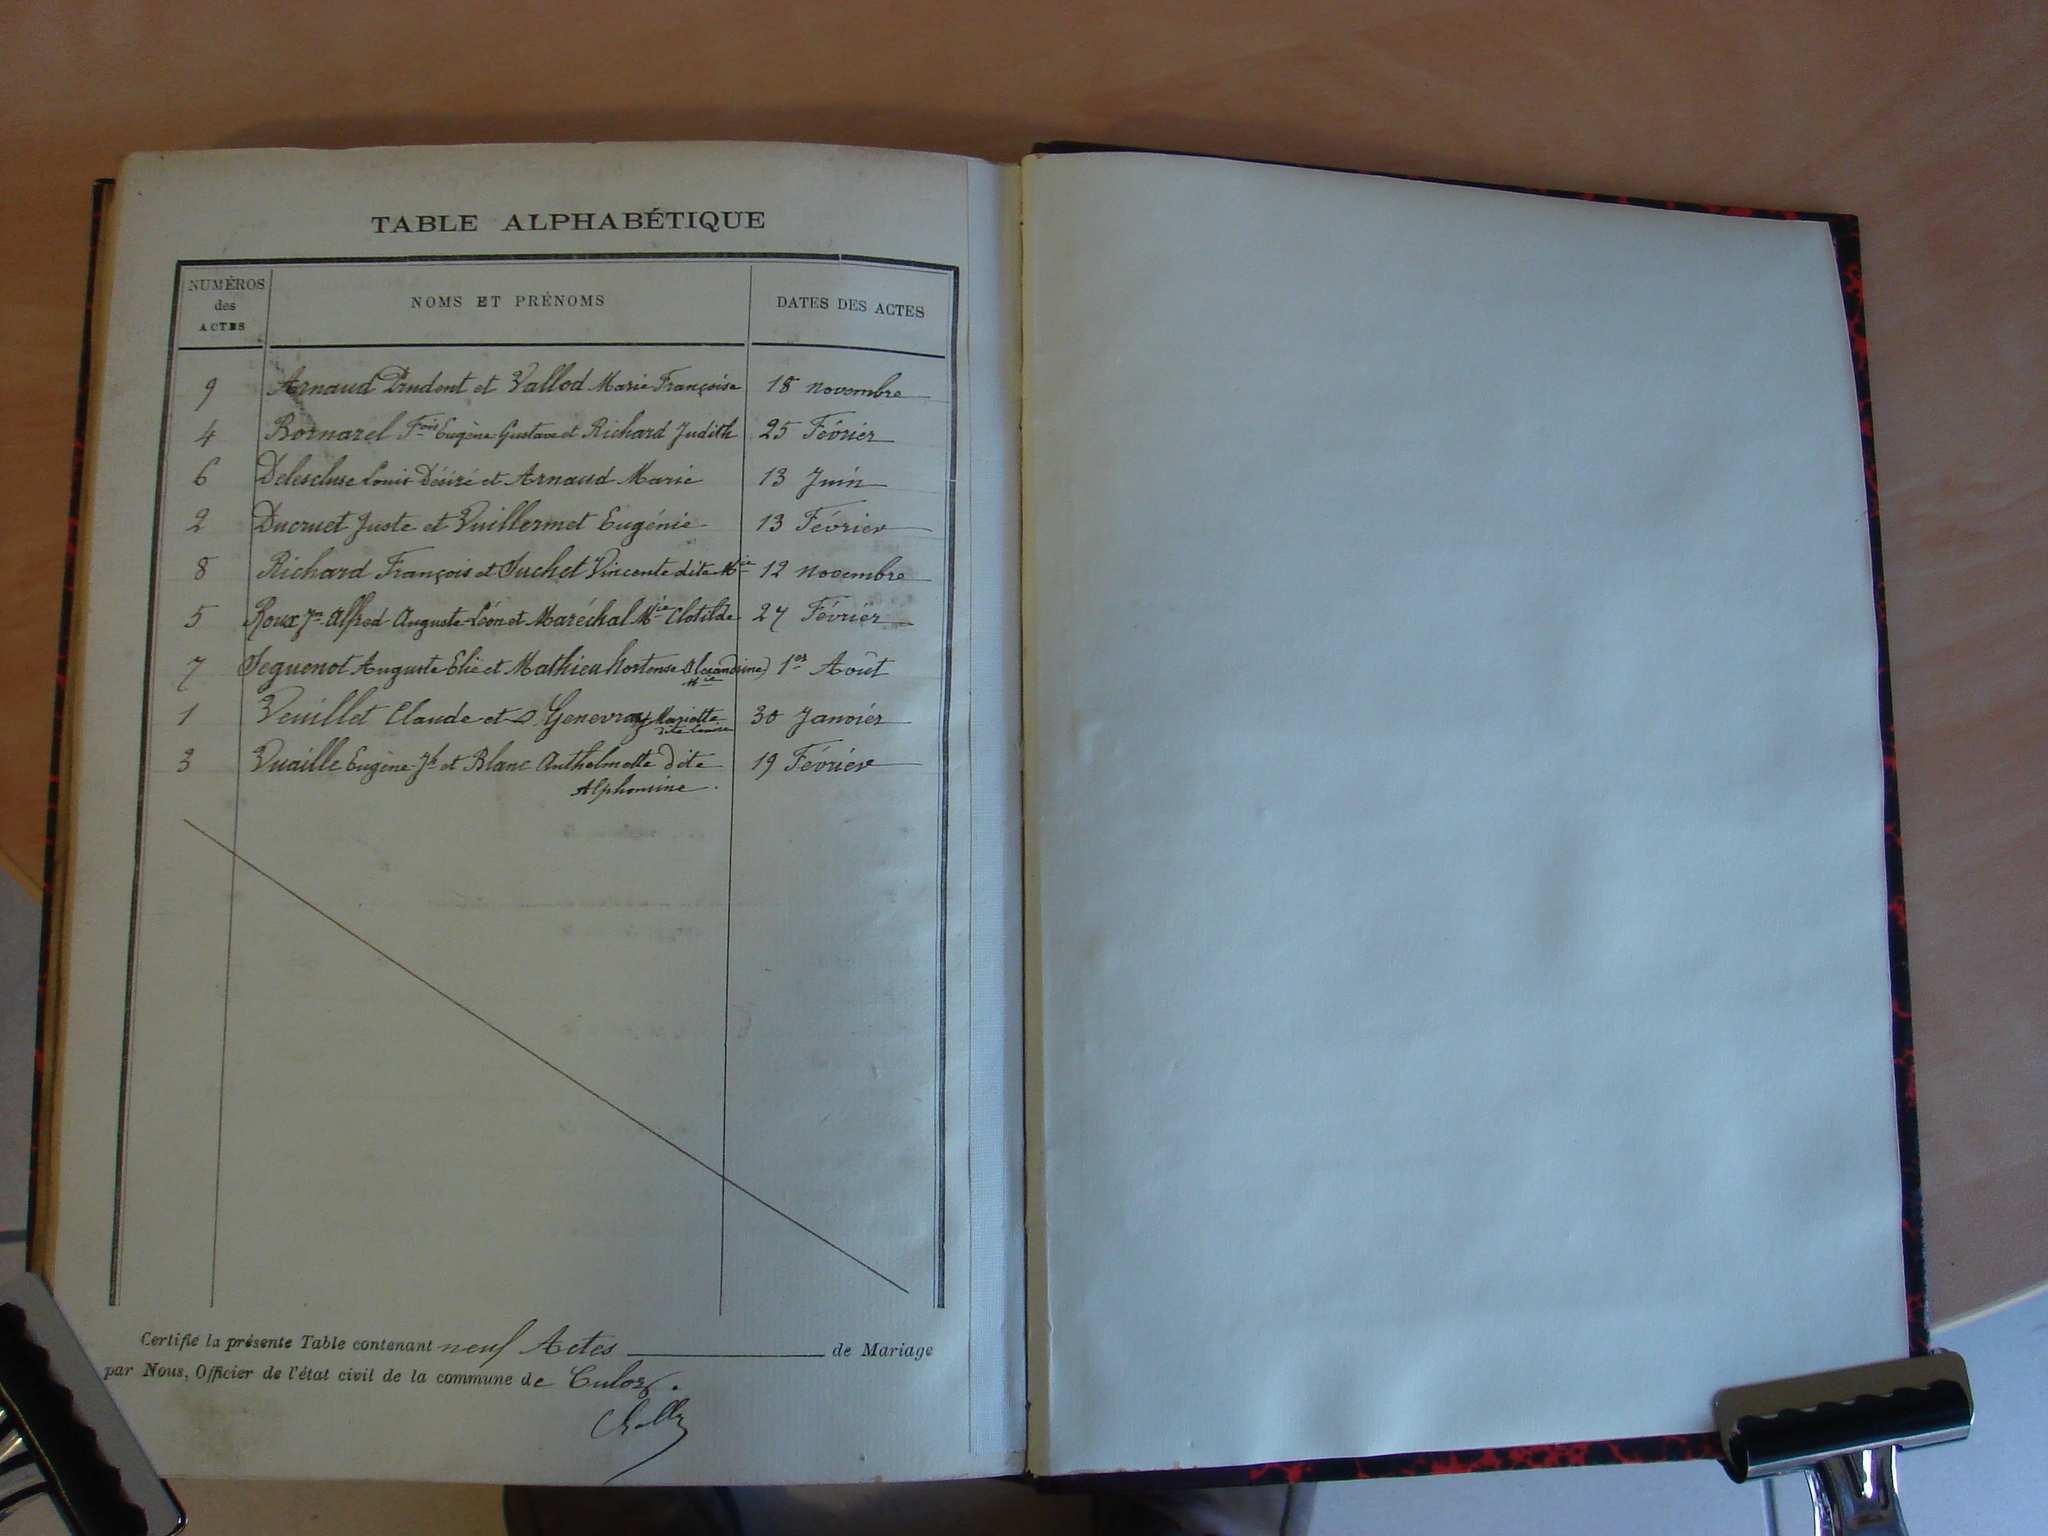 TABLE ALPHABÉTIQUE
NUMÉROS des ACTES NOMS ET PRÉNOMS DATES DES ACTES
9 Arnaud Prudent et Vallod Marie Françoise 18 novembre
4 Bornarel Fois Eugène Gustave et Richard Judith 25 Février
6 Delescluse Louis Désiré et Arnaud Marie 13 Juin
2 Ducruet Juste et Vuillermet Eugénie 13 Février
8 Richard François et Suchet Vincente dite Mie 12 novembre
5 Roux Jn Alfred Auguste Léon et Maréchal Mie Clotilde 27 Février
7 Seguenot Auguste Elie et Mathieu hortense Alexandrine) 1er Août
Mie
1 Veuillet Claude et Genevray Mariette 30 Janvier
dite
3 Vuaille Eugène Jh et Blanc Anthelmette dite 19 Février
Alphonsine.
Certifié la présente Table contenant neuf Actes de Mariage
par Nous, Officier de l'état civil de la commune de Culoz.